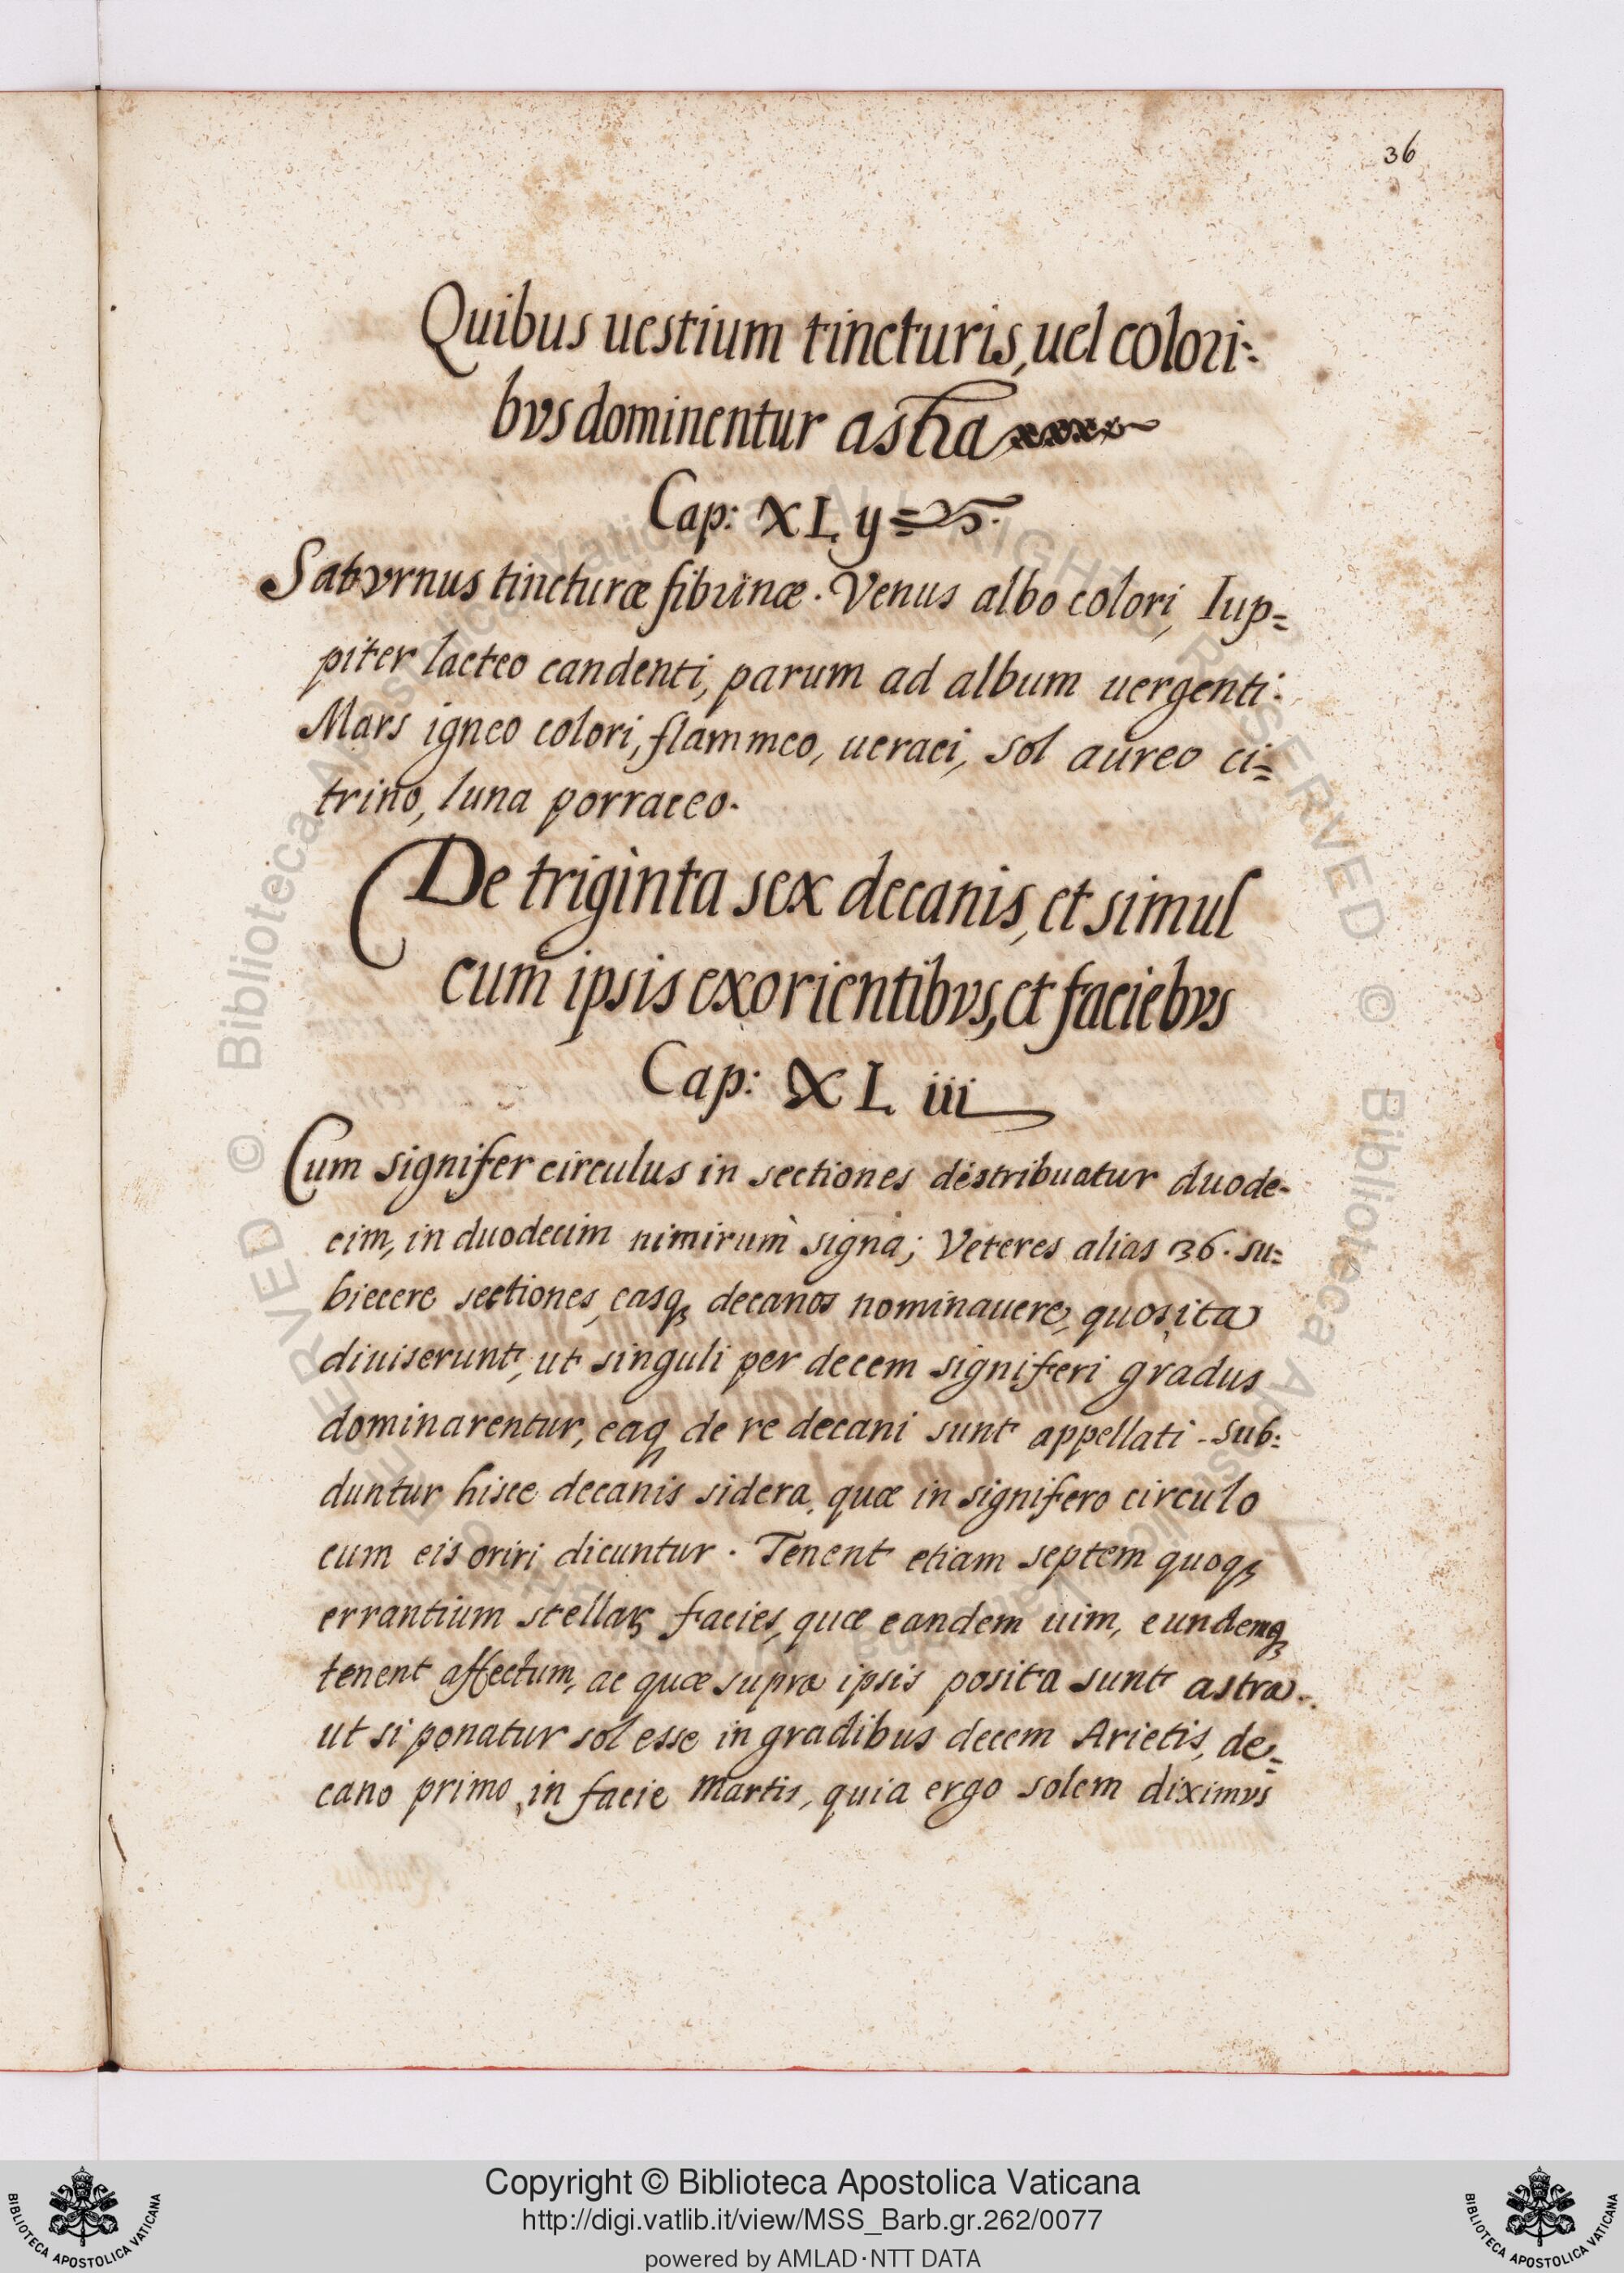 36
Quibus uestium tincturis, uel colori=
bvs dominentur astra
Cap: XLij
Satvrnus tincturæ fibrinæ. Venus albo colori, Iup=
piter lacteo candenti, parum ad album uergenti:
Mars igneo colori, flammeo, ueraci, sol aureo ci=
trino, luna porraceo.
De triginta sex decanis, et simul
cum ipsis exorientibvs, et faciebvs
Cap: XLiii
Cum signifer circulus in sectiones distribuatur duode-
cim, in duodecim nimirum signa; Veteres alias 36. su=
biecere sectiones, easq; decanos nominauere, quos ita
diuiserunt, ut singuli per decem signiferi gradus
dominarentur, eaq de re decani sunt appellati. Sub=
duntur hisce decanis sidera, quæ in signifero circulo
cum eis oriri dicuntur. Tenent etiam septem quoq;
errantium stellaꝝ facies, quæ eandem uim, eundemq;
tenent affectum, ac quæ supra ipsis posita sunt astra.
ut si ponatur sol esse in gradibus decem Arietis, de=
cano primo, in facie Martis, quia ergo solem diximvs
© Biblioteca Apostolica Vaticana ALL RIGHTS RESERVED
Copyright © Biblioteca Apostolica Vaticana
http://digi.vatlib.it/view/MSS_Barb.gr.262/0077
powered by AMLAD·NTT DATA
BIBLIOTECA APOSTOLICA VATICANA
BIBLIOTECA APOSTOLICA VATICANA